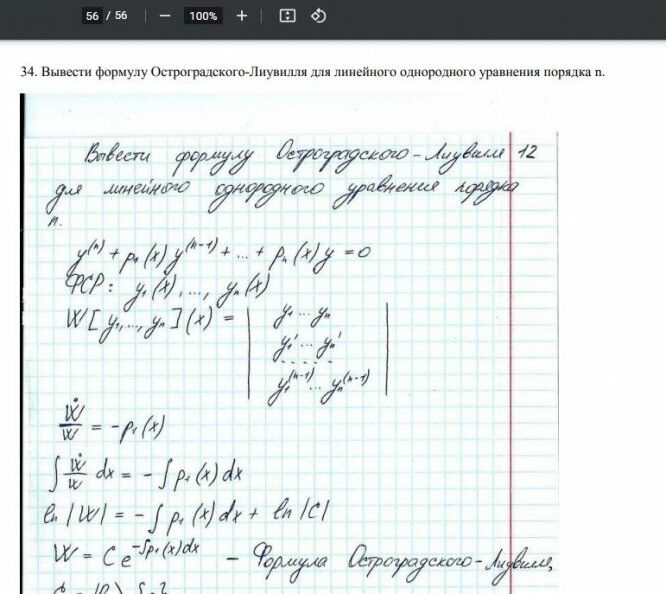 56 / 56 | − 100% +
34. Вывести формулу Остроградского-Лиувилля для линейного однородного уравнения порядка n.
Вывести формулу Остроградского-Лиувилл 12
для линейного однородного уравнения порядка
n.
y⁽ⁿ⁾ + p₁(x) y⁽ⁿ⁻¹⁾ + ... + pₙ(x) y = 0
ФСР: y₁(x), ..., yₙ(x)
W[y₁, ..., yₙ](x) = | y₁ ... yₙ |
y₁' ... yₙ'
. . . . . .
y₁⁽ⁿ⁻¹⁾ ... yₙ⁽ⁿ⁻¹⁾
Ẇ/W = -p₁(x)
∫ Ẇ/W dx = - ∫ p₁(x) dx
ln |W| = - ∫ p₁(x) dx + ln |C|
W = C e^(-∫p₁(x)dx) - Формула Остроградского-Лиувилл,